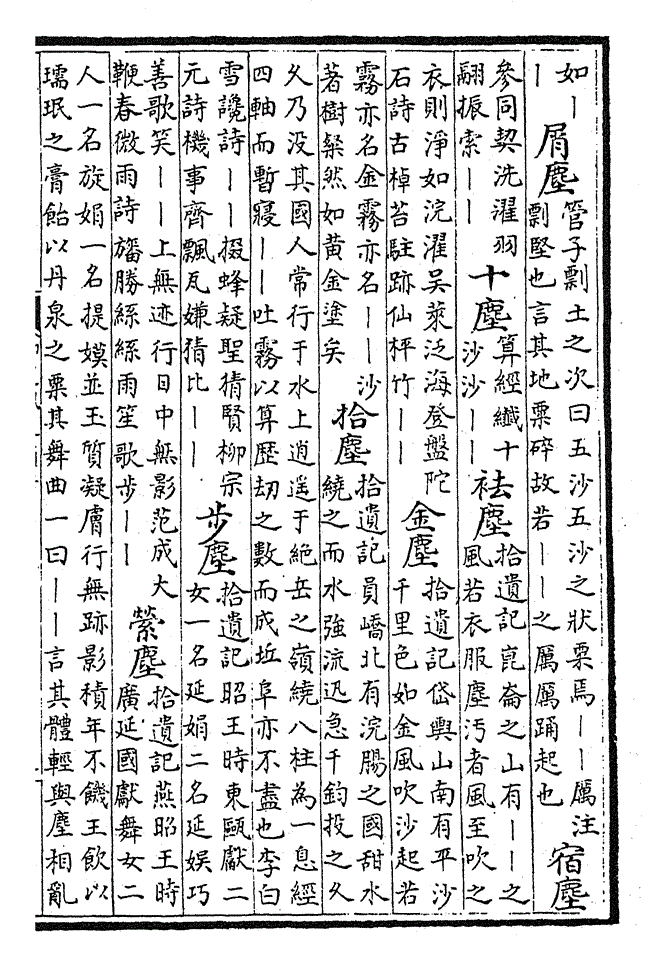 如丨
丨
屑塵
管子剽土之次曰五沙五沙之狀粟焉丨丨厲注
剽堅也言其地粟碎故若丨丨之厲厲踊起也
宿塵
參同契洗濯羽
翮振索丨丨
十塵
算經纖十
沙沙丨丨
袪塵
拾遺記崑崙之山有丨丨之
風若衣服塵汚者風至吹之
衣則淨如浣濯吳萊泛海登盤陀
石詩古棹苔駐跡仙枰竹丨丨
金塵
拾遺記岱輿山南有平沙
千里色如金風吹沙起若
霧亦名金霧亦名丨丨沙
著樹粲然如黃金塗矣
拾塵
拾遺記員嶠北有浣腸之國甜水
繞之而水強流迅急千鈞投之久
久乃没其國人常行于水上逍遥于絶岳之嶺繞八柱為一息經
四軸而暫寢丨丨吐霧以算歷刼之數而成坵阜亦不盡也李白
雪讒詩丨丨掇蜂疑聖猜賢柳宗
元詩機事齊飄瓦嫌猜比丨丨
步塵
拾遺記昭王時東甌獻二
女一名延娟二名延娱巧
善歌笑丨丨上無迹行日中無影范成大
鞭春微雨詩旛勝絲絲雨笙歌步丨丨
縈塵
拾遺記燕昭王時
廣延國獻舞女二
人一名旋娟一名提嫫並玉質凝膚行無跡影積年不饑王飲以
瓀珉之膏飴以丹泉之粟其舞曲一曰丨丨言其體輕與塵相亂